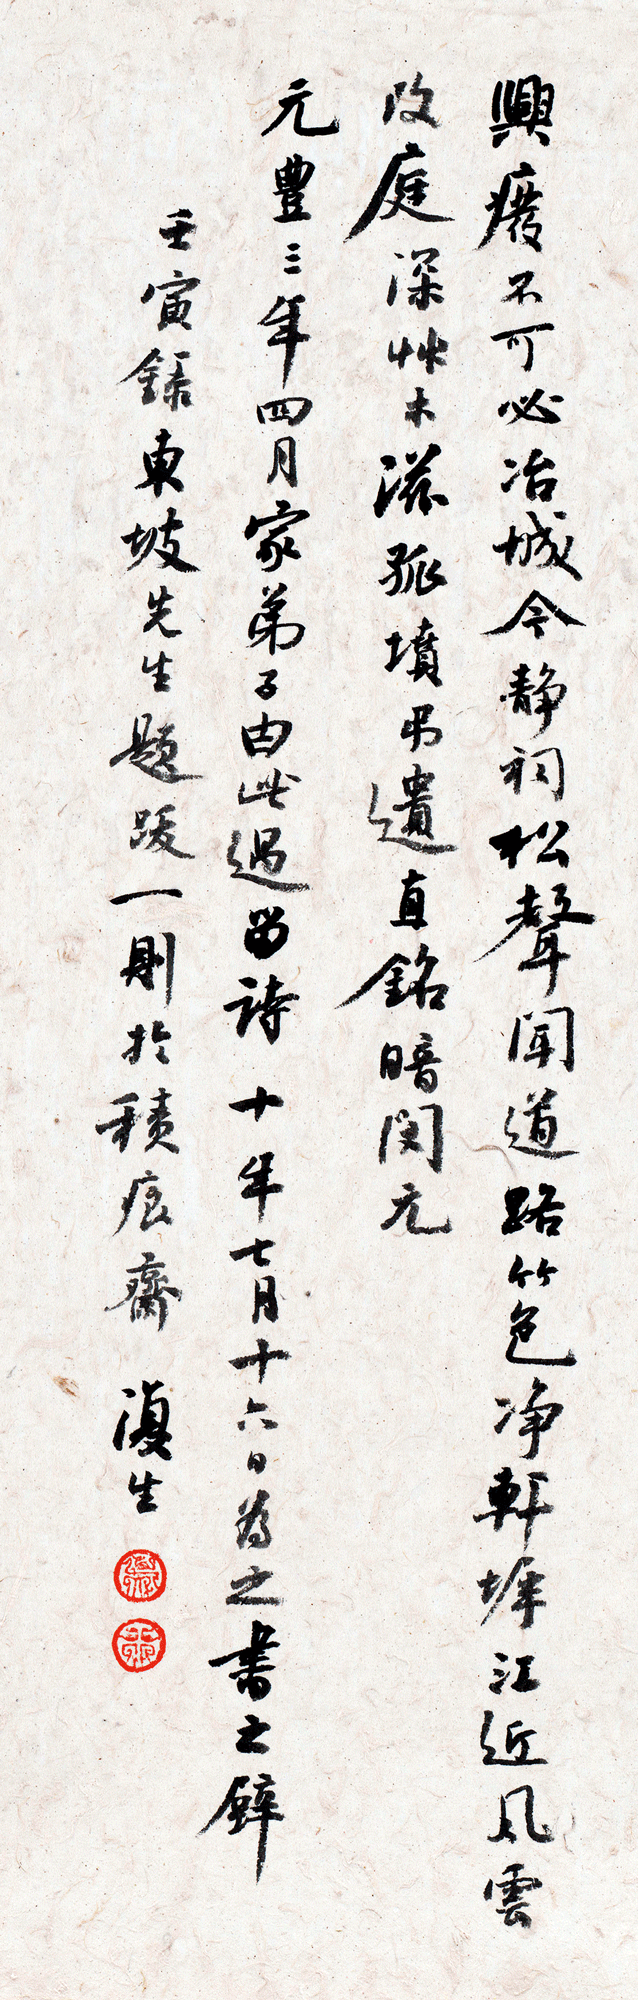 興廢不可必冶城今静祠松聲聞道路竹色净軒墀江近風雲
改庭深艸木滋孤墳弔遺直銘暗閔元
元豐三年四月家弟子由此過留詩十年七月十六日為之書之壁
壬寅錄東坡先生題跋一則於積痕齋 復生